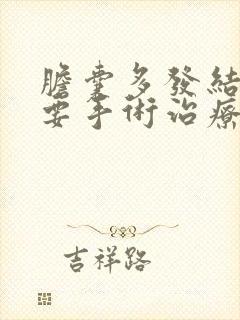 膽囊多發結
要手術治療
吉祥路